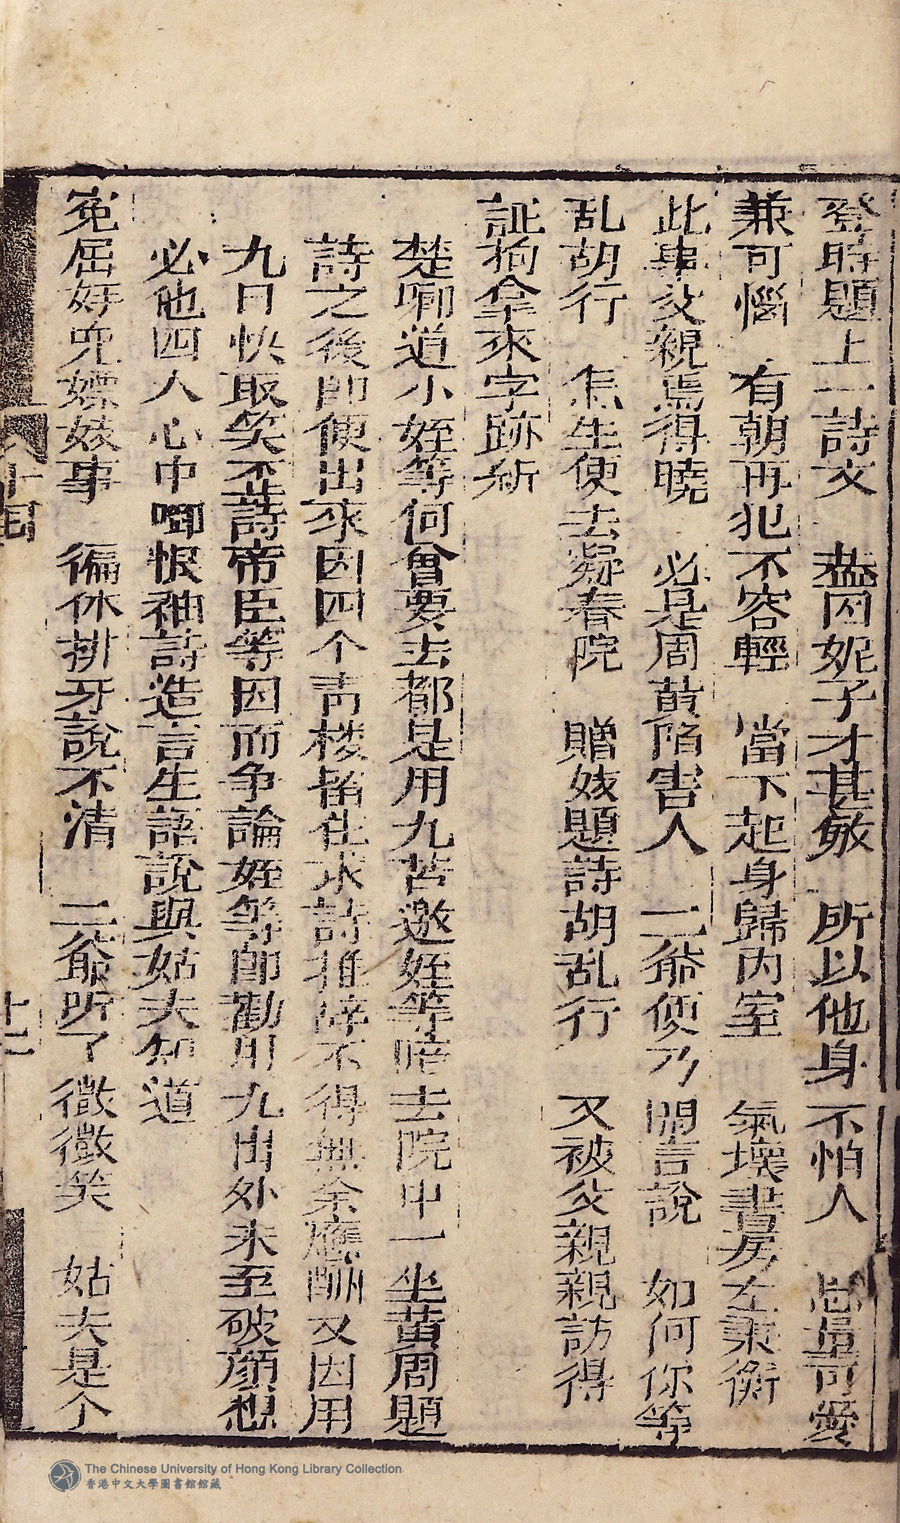 登時題上一詩文　蓋因妮子才甚敏　所以他身不怕人　思量可愛
兼可惱　有朝再犯不容輕　當下起身歸內室　氣壞書房左秉衡
此事父親焉得曉　必是周黃陷害人　二爺便乃開言說　如何你等
乱胡行　怎生便去凝春院　贈妓題詩胡乱行　又被父親親訪得
証拘拿來字跡新
楚卿道小姪等何曾要去都是用九苦邀姪等陪去院中一坐黃周題
詩之後即便出來因四个青楼留住求詩推諱不得無奈應酬又因用
九日快取笑不㫖詩帝臣等因而争論姪等即勸用九出外未至破顏想
必他四人心中啣恨袖詩造言生語說與姑夫知道
冤屈好兇嫖妓事　徧休排牙說不清　二爺听了微微笑　姑夫是个
十四
十二
The Chinese University of Hong Kong Library Collection
香港中文大學圖書館館藏